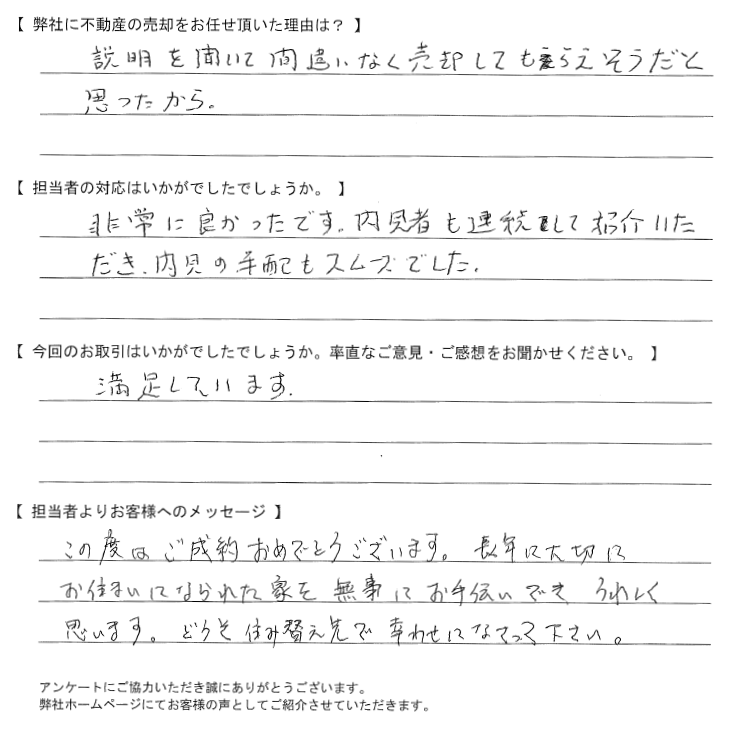 【 弊社に不動産の売却をお任せ頂いた理由は？ 】
説明を聞いて間違いなく売却してもらえそうだと
思ったから。
【 担当者の対応はいかがでしたでしょうか。 】
非常に良かったです。内見者も連続して紹介いた
だき、内見の手配もスムーズでした。
【 今回のお取引はいかがでしたでしょうか。率直なご意見・ご感想をお聞かせください。 】
満足しています。
【 担当者よりお客様へのメッセージ 】
この度はご成約おめでとうございます。長年に大切に
お住まいになられた家を無事にお手伝いでき うれしく
思います。どうぞ住み替え先で幸わせになって下さい。
アンケートにご協力いただき誠にありがとうございます。
弊社ホームページにてお客様の声としてご紹介させていただきます。